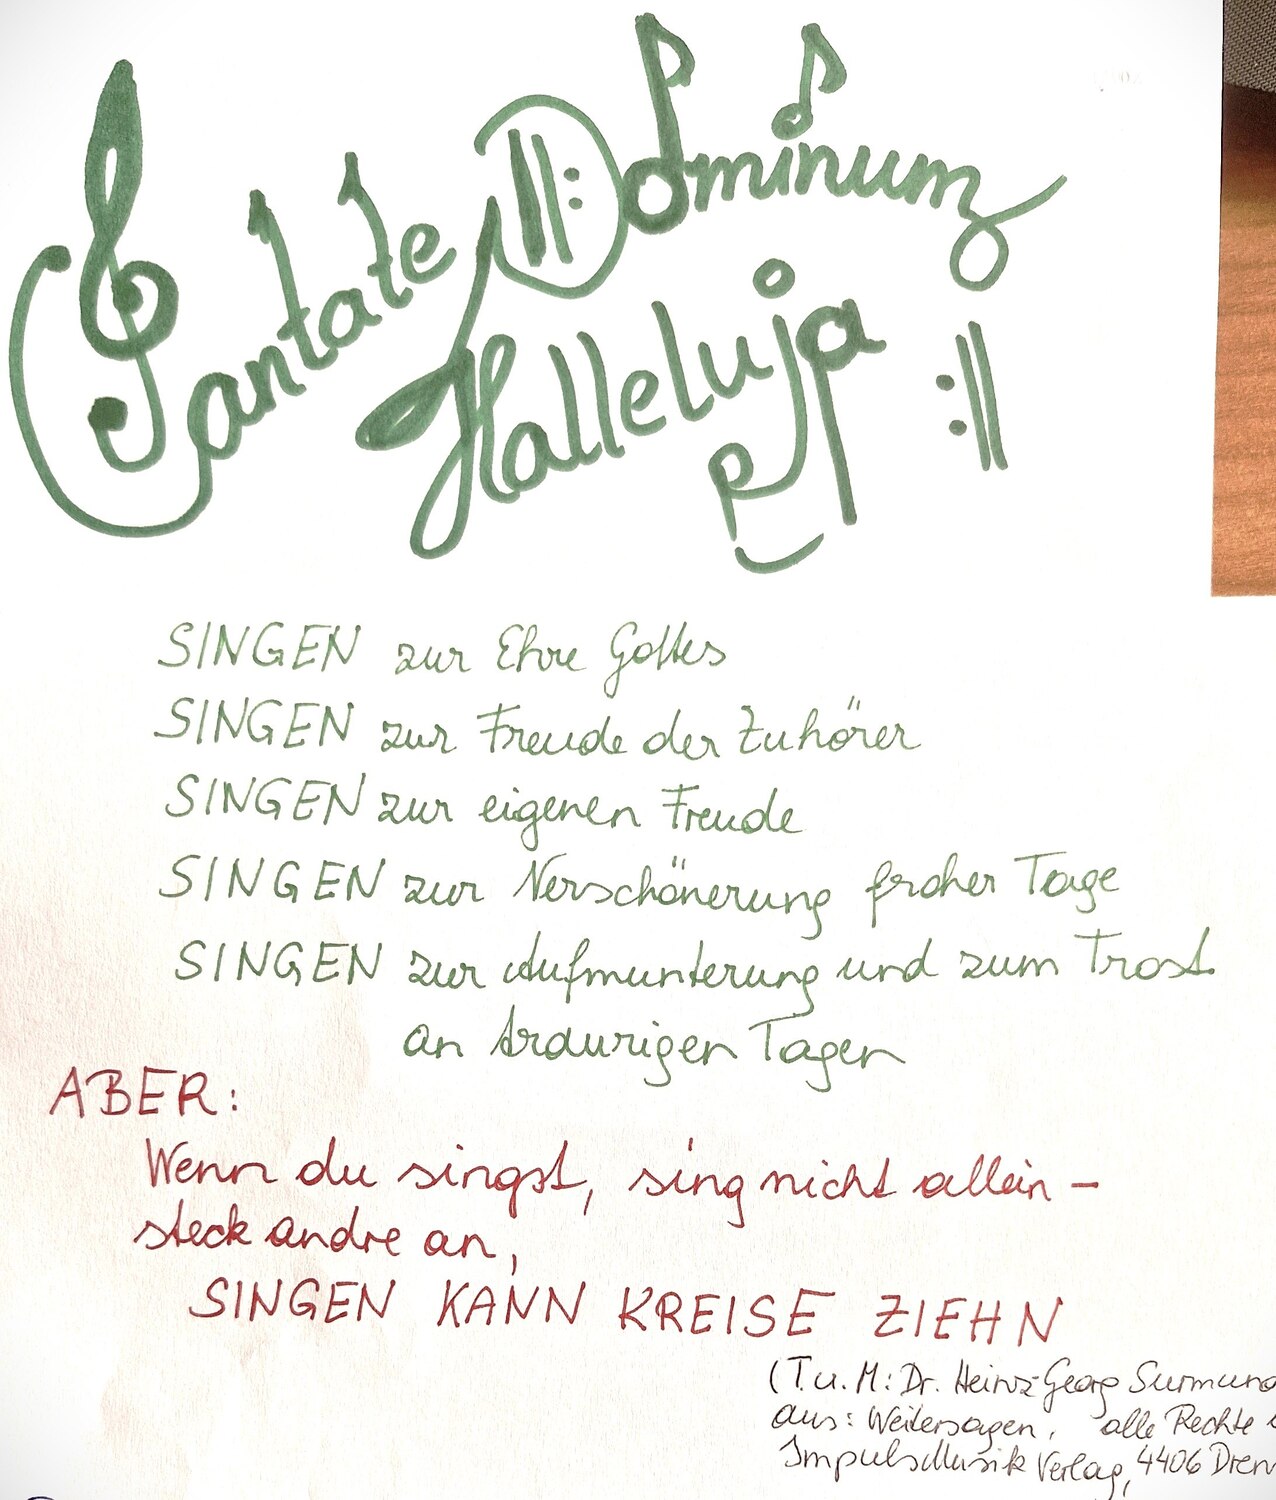 Cantate Dominum
Halleluja
SINGEN zur Ehre Gottes
SINGEN zur Freude der Zuhörer
SINGEN zur eigenen Freude
SINGEN zur Verschönerung froher Tage
SINGEN zur Aufmunterung und zum Trost
an traurigen Tagen
ABER:
Wenn du singst, sing nicht allein –
steck andre an,
SINGEN KANN KREISE ZIEHN
(T.u.M: Dr. Heinz-Georg Surmund
aus: Weitersagen, alle Rechte
Impulse Musik Verlag, 4406 Dren